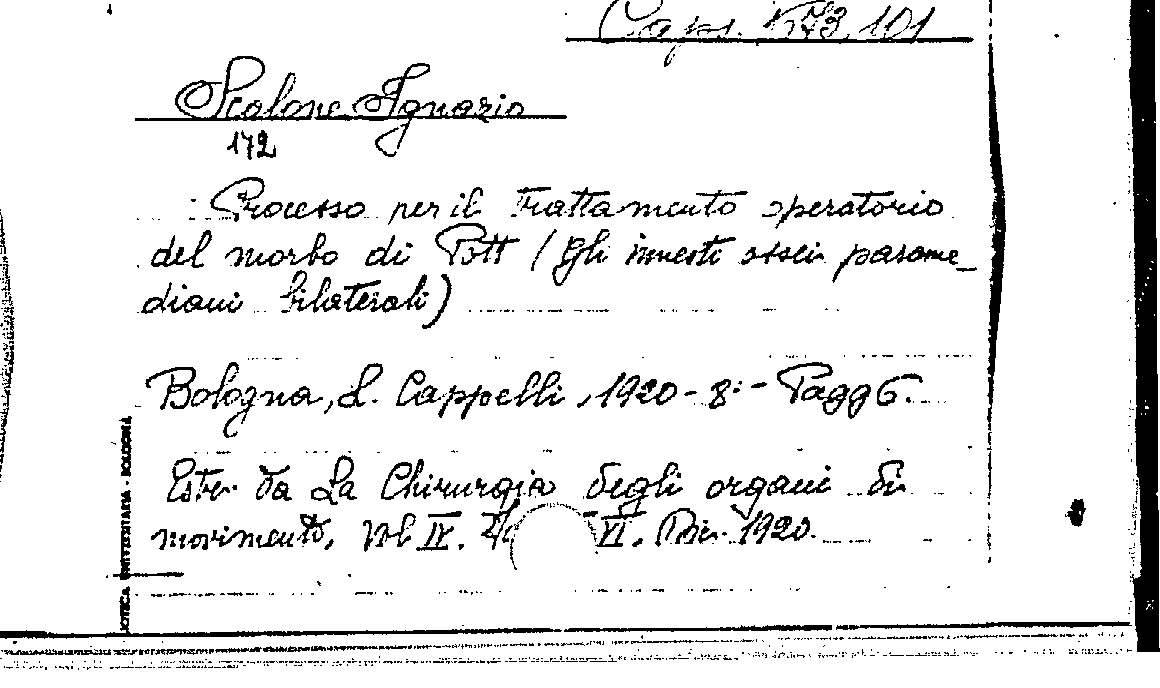 Caps. 573, 101
Scalone Ignazio
172
Processo per il trattamento operatorio
del morbo di Pott (Gli innesti ossei parame_
diani bilaterali)
Bologna, L. Cappelli, 1920 - 8: - Pagg 6.
Estr. da La Chirurgia degli organi di
movimento, Vol IV. VI. Dic. 1920.
IOTECA UNIVERSITARIA - BOLOGNA